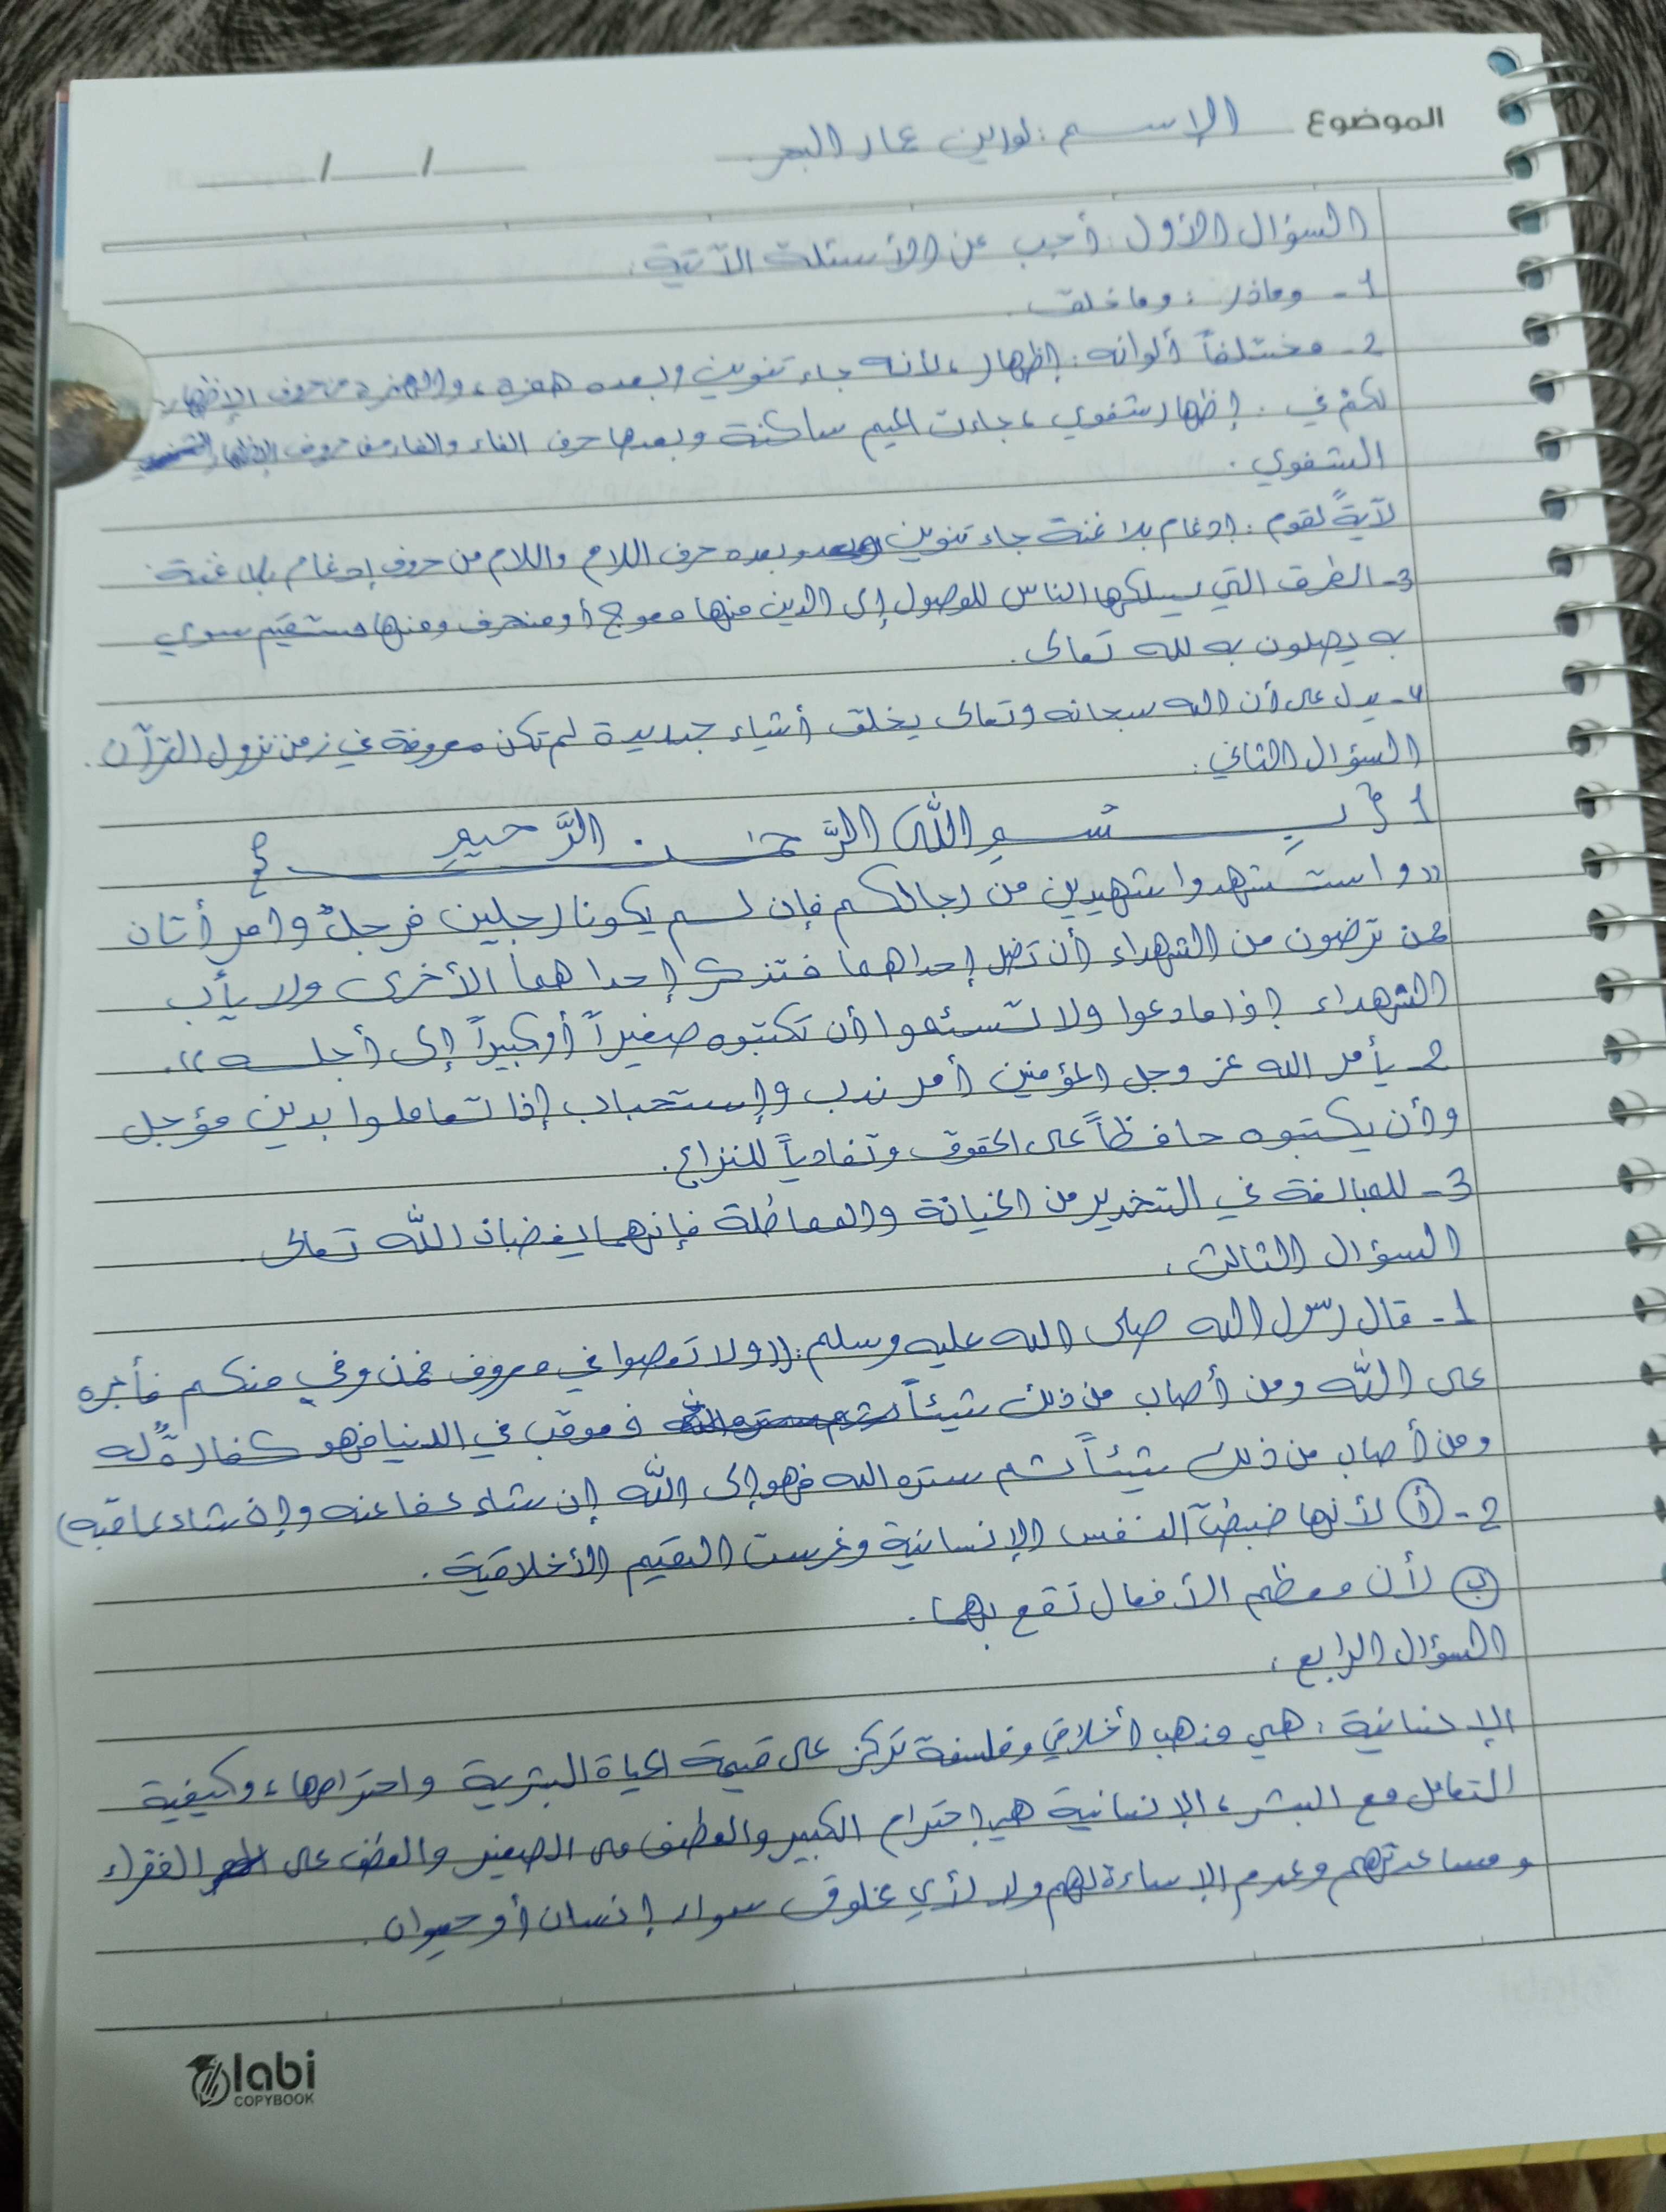 الموضوع الإسم: لورين عمار البحر
/ /
السؤال الأول: أجب عن الأسئلة الآتية:
1- وماذر: وما خلق.
2- مختلفاً ألوانه: إظهار، لأنه جاء تنوين وبعده همزة، والهمزة من حروف الإظهار.
لكم في: إظهار شفوي، جاءت الميم ساكنة وبعدها حرف الفاء والفاء من حروف الإظهار
الشفوي.
لآيةً لقوم: إدغام بلا غنة جاء تنوين وبعده حرف اللام واللام من حروف إدغام بلا غنة.
3- الطرق التي يسلكها الناس للوصول إلى الدين منها معوج أو منحرف ومنها مستقيم سوي
به يصلون به لله تعالى.
4- يدل على أن الله سبحانه وتعالى يخلق أشياء جديدة لم تكن معروفة في زمن نزول القرآن.
السؤال الثاني:
1 { بسم الله الرَّحمن الرَّحيم }
"واستشهدوا شهيدين من رجالكم فإن لم يكونا رجلين فرجلٌ وامرأتان
ممن ترضون من الشهداء أن تضل إحداهما فتذكر إحداهما الأخرى ولا يأب
الشهداء إذا مادعوا ولا تسئموا أن تكتبوه صغيراً أو كبيراً إلى أجله".
2- يأمر الله عز وجل المؤمنين أمر ندب وإستحباب إذا تعاملوا بدين مؤجل
وأن يكتبوه حافظاً على الحقوق وتفادياً للنزاع.
3- للمبالغة في التحذير من الخيانة والمماطلة فإنهما يغضبان الله تعالى.
السؤال الثالث:
1- قال رسول الله صلى الله عليه وسلم: ((ولا تعصوا في معروف فمن وفي منكم فأجره
على الله ومن أصاب من ذلك شيئاً فعوقب في الدنيا فهو كفارةٌ له
ومن أصاب من ذلك شيئاً ثم ستره الله فهو إلى الله إن شاء عفا عنه وإن شاء عاقبه)
2- أ لأنها ضبضت النفس الإنسانية وغرست القيم الأخلاقية.
ب لأن معظم الأفعال تقع بهما.
السؤال الرابع:
الإنسانية: هي مذهب أخلاقي وفلسفة تركز على قيمة الحياة البشرية واحترامها، وكيفية
التعامل مع البشر، الإنسانية هي إحترام الكبير والعطف على الصغير والعطف على الفقراء
ومساعدتهم وعدم الإساءة لهم ولا لأي مخلوق سواء إنسان أو حيوان.
labi
COPYBOOK